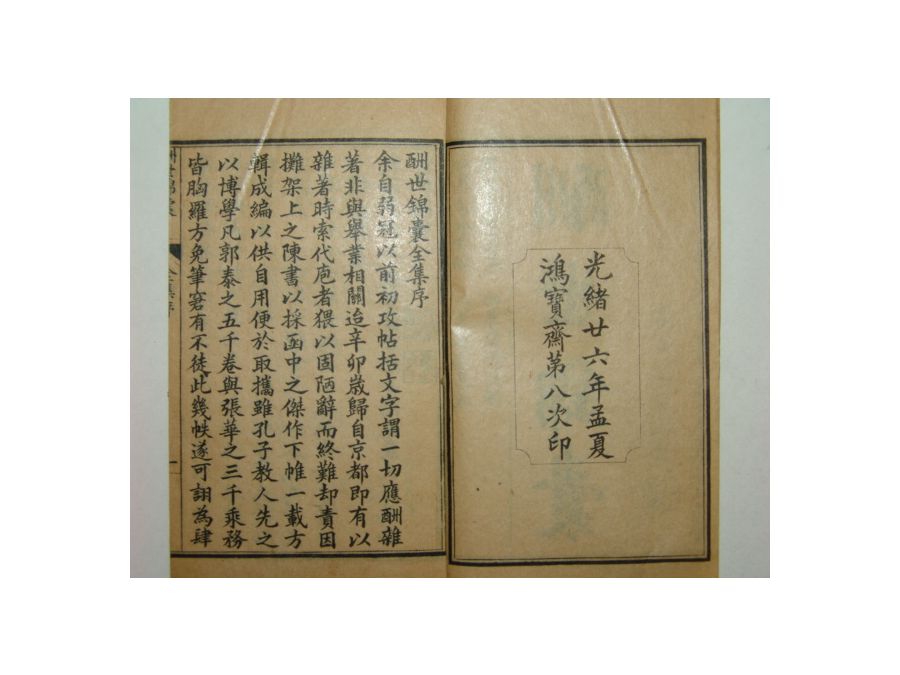 光緒廿六年孟夏
鴻寶齋第八次印
酬世錦囊全集序
余自弱冠以前初攻帖括文字謂一切應酬雜
著非與舉業相關迨辛卯歲歸自京都即有以
雜著時索代庖者猥以固陋辭而終難却責因
攤架上之陳書以採函中之傑作下帷一載方
輯成編以供自用便於取攜雖孔子教人先之
以博學凡郭泰之五千卷與張華之三千乘務
皆胸羅方免筆窘有不徒此幾帙遂可詡為肆
酬世錦囊
全集序
一